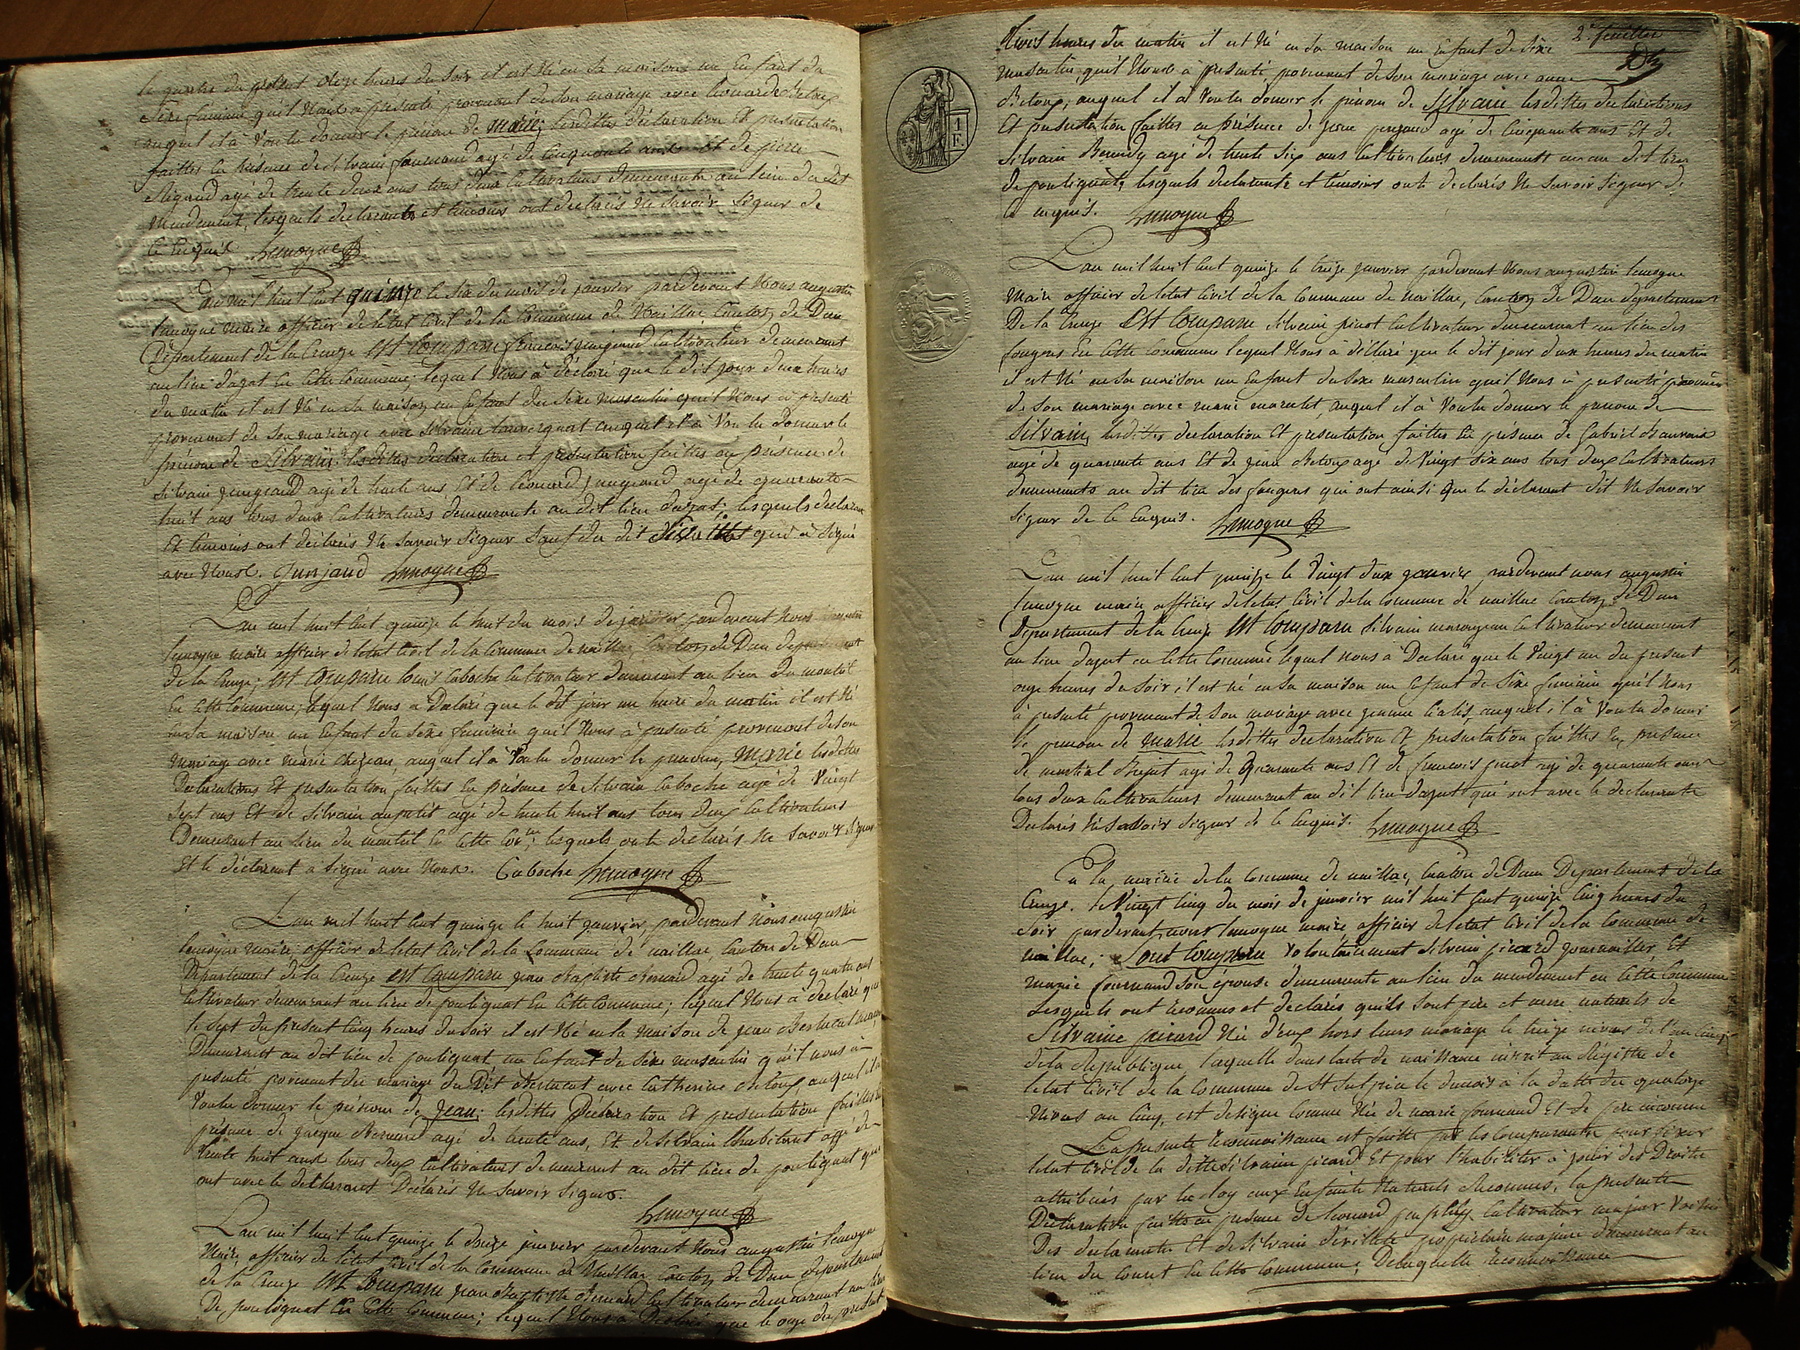 le quatre du présent onze heures du soir il est né en sa maison un Enfant du
Sexe féminin qu'il Nous a présenté provenant de son mariage avec Léonarde Betoux
auquel il à voulu donner le prénom de Marie; lesdittes déclaration Et présentation
faittes en présence de Silvain fournaud agé de Cinquante ans Et de pierre
agé de trente deux ans tous deux Cultivateurs demeurants au lieu du dit
Mendement, lesquels déclarant et témoins ont déclarés Ne Savoir Signer de
ce Enquis. Lemoyne
L'an mil huit Cent quinze le Six du mois de janvier pardevant Nous augustin
lemoyne maire officier de letat Civil de la Commune de Naillac Canton de Dun
Département de la Creuze Est Comparu françois junjaud Cultivateur demeurant
au lieu d'agat En cette Commune, lequel Nous à déclaré que le dit jour deux heures
du matin il est né en Sa maison un Enfant du Sexe masculin qu'il Nous a présenté
provenant de Son mariage avec Silvaine auquel il à Voulu donner le
prénom de Silvain; lesdittes déclaration et présentation faittes en présence de
Silvain junjaud agé de trente ans Et de Léonard junjaud agé de quarante
huit ans tous deux Cultivateurs demeurants au dit lieu dagat; lesquels déclarant
Et témoins ont déclarés Ne Savoir Signer Sauf du dit qui à Signé
avec Nous. Junjaud Lemoyne
L'an mil huit Cent quinze le huit du mois de janvier pardevant Nous augustin
lemoyne maire officier de letat Civil de la Commune de naillac Canton de Dun département
de la Creuze; Est Comparu louis Caboche Cultivateur demeurant au lieu du monteil
En cette Commune, lequel Nous a Déclaré que le dit jour une heure du matin il est Né
En Sa maison un Enfant du Sexe féminin qu'il Nous à présenté provenant de son
mariage avec marie auquel il à Voulu donner le prénom, Marie lesdittes
Déclarations Et présentation faittes En présence de Silvain Caboche agé de Vingt
Sept ans Et de Silvain aupetit agé de trente huit ans tous deux Cultivateurs
Demeurant au lieu du monteil En cette Com.ne lesquels ont déclarés ne Savoir Signer
Et le déclarant a Signé avec Nous. Caboche Lemoyne
L'an mil huit Cent quinze le huit janvier, pardevant Nous augustin
lemoyne maire officier de letat Civil de la Commune de naillac Canton de Dun
Département de la Creuze Est Comparu jean Baptiste agé de trente quatre ans
Cultivateur demeurant au lieu de poulignat En cette Commune; lequel Nous à déclaré que
le Sept du présent Cinq heures du Soir il est Né en la Maison de jean
Demeurant au dit lieu de poulignat un Enfant du Sexe masculin qu'il nous à
présenté provenant du mariage du Dit avec Catherine Betoux, auquel il a
Voulu donner le prénom de Jean; lesdittes Déclaration Et présentation faittes en
présence de jacque agé de trente ans, Et de Silvain agé de
trente huit ans tous deux Cultivateurs demeurant au dit lieu de poulignat qui
ont avec le déclarant Déclarés Ne Savoir Signer.
Lemoyne
L'an mil huit Cent quinze le Douze janvier pardevant Nous augustin lemoyne
Maire officier de létat Civil de la Commune de Naillac Canton de Dun département
de la Creuze Est Comparu jean Baptiste Cultivateur demeurant au lieu
De poulignat En Cette Commune; lequel Nous à Déclaré que le onze du présent
2.e feuillet
heures du matin il est Né en Sa maison un Enfant du Sexe
masculin, qu'il Nous à présenté, provenant de Son mariage avec anne
Betoux, auquel il à Voulu donner le prénom de Silvain lesdittes déclarations
Et présentation faittes en présence de agé de Cinquante ans Et de
Silvain agé de trente Six ans Cultivateurs demeurants au dit lieu
de pouligant, lesquels déclarants et témoins onts déclarés Ne Savoir Signer de
Ce enquis. Lemoyne
1 F.
L'an mil huit Cent quinze le treize janvier pardevant Nous augustin lemoyne
Maire officier de létat Civil de la Commune de naillac, Canton de Dun département
De la Creuze Est Comparu Silvain pinot Cultivateur demeurant au lieu des
fougeres En Cette Commune lequel Nous à déclaré que le dit jour deux heures du matin
il est Né en Sa maison un Enfant du Sexe masculin qu'il Nous à présenté provenant
de Son mariage avec marie auquel il à Voulu donner le prénom de
Silvain, lesdittes déclaration Et présentation faittes En présence de Gabriel
agé de quarante ans Et de jean Betoux agé de Vingt Six ans tous deux Cultivateurs
demeurants au dit lieu des fougeres qui ont ainsi que le déclarant dit Ne Savoir
Signer de Ce Enquis. Lemoyne
L'an mil huit Cent quinze le Vingt deux janvier, pardevant nous augustin
lemoyne maire officier de létat Civil de la Commune de naillac Canton de Dun
Département de la Creuze Est Comparu Silvain Cultivateur demeurant
au lieu dagat en Cette Commune lequel nous a Déclaré que le Vingt un du présent
onze heures du Soir, il est né en Sa maison un Enfant du Sexe féminin qu'il Nous
à présenté provenant de Son mariage avec jeanne auquel il à Voulu donner
le prénom de Marie lesdittes déclaration Et présentation faittes En présence
de martial agé de Quarante ans Et de françois agé de quarante ans
tous deux Cultivateurs demeurant au dit lieu dagat qui ont avec le déclarant
Déclarés Ne Savoir Signer de Ce Enquis. Lemoyne
En la mairie de la Commune de naillac, Canton de Dun Département de la
Creuze. le Vingt Cinq du mois de janvier mil huit Cent quinze Cinq heures du
Soir pardevant nous lemoyne maire officier de létat Civil de la Commune de
naillac; Sont Comparu Volontairement Silvain picard journaillier, Et
marie fournaud Son épouse demeurants au lieu du mendement en Cette Commune
Lesquels ont reconnus et déclarés qu'ils Sont père et mère naturels de
Silvaine picard Née d'eux hors leurs mariage le treize nivos de l'an Cinq
de la République, laquelle dans lacte de naissance inscrit au Régistre de
létat Civil de la Commune de St Sulpice le dunois à la datte du quatorze
Nivos an Cinq, est désigné Comme Née de marie fournaud Et de père inconnu
La présente reconnoissance est faitte par les Comparants pour fixer
létat Civil de la ditte Silvaine picard Et pour l'habiliter à jouir des Droits
attribués par la loy aux Enfants Naturels Reconnus; la présente
Déclaration faitte en présence de léonard Cultivateur majeur Voisin
Des déclarants Et de Silvain propriétaire majeur demeurant au
lieu du Courret En Cette Commune; De laquelle reconnoissance